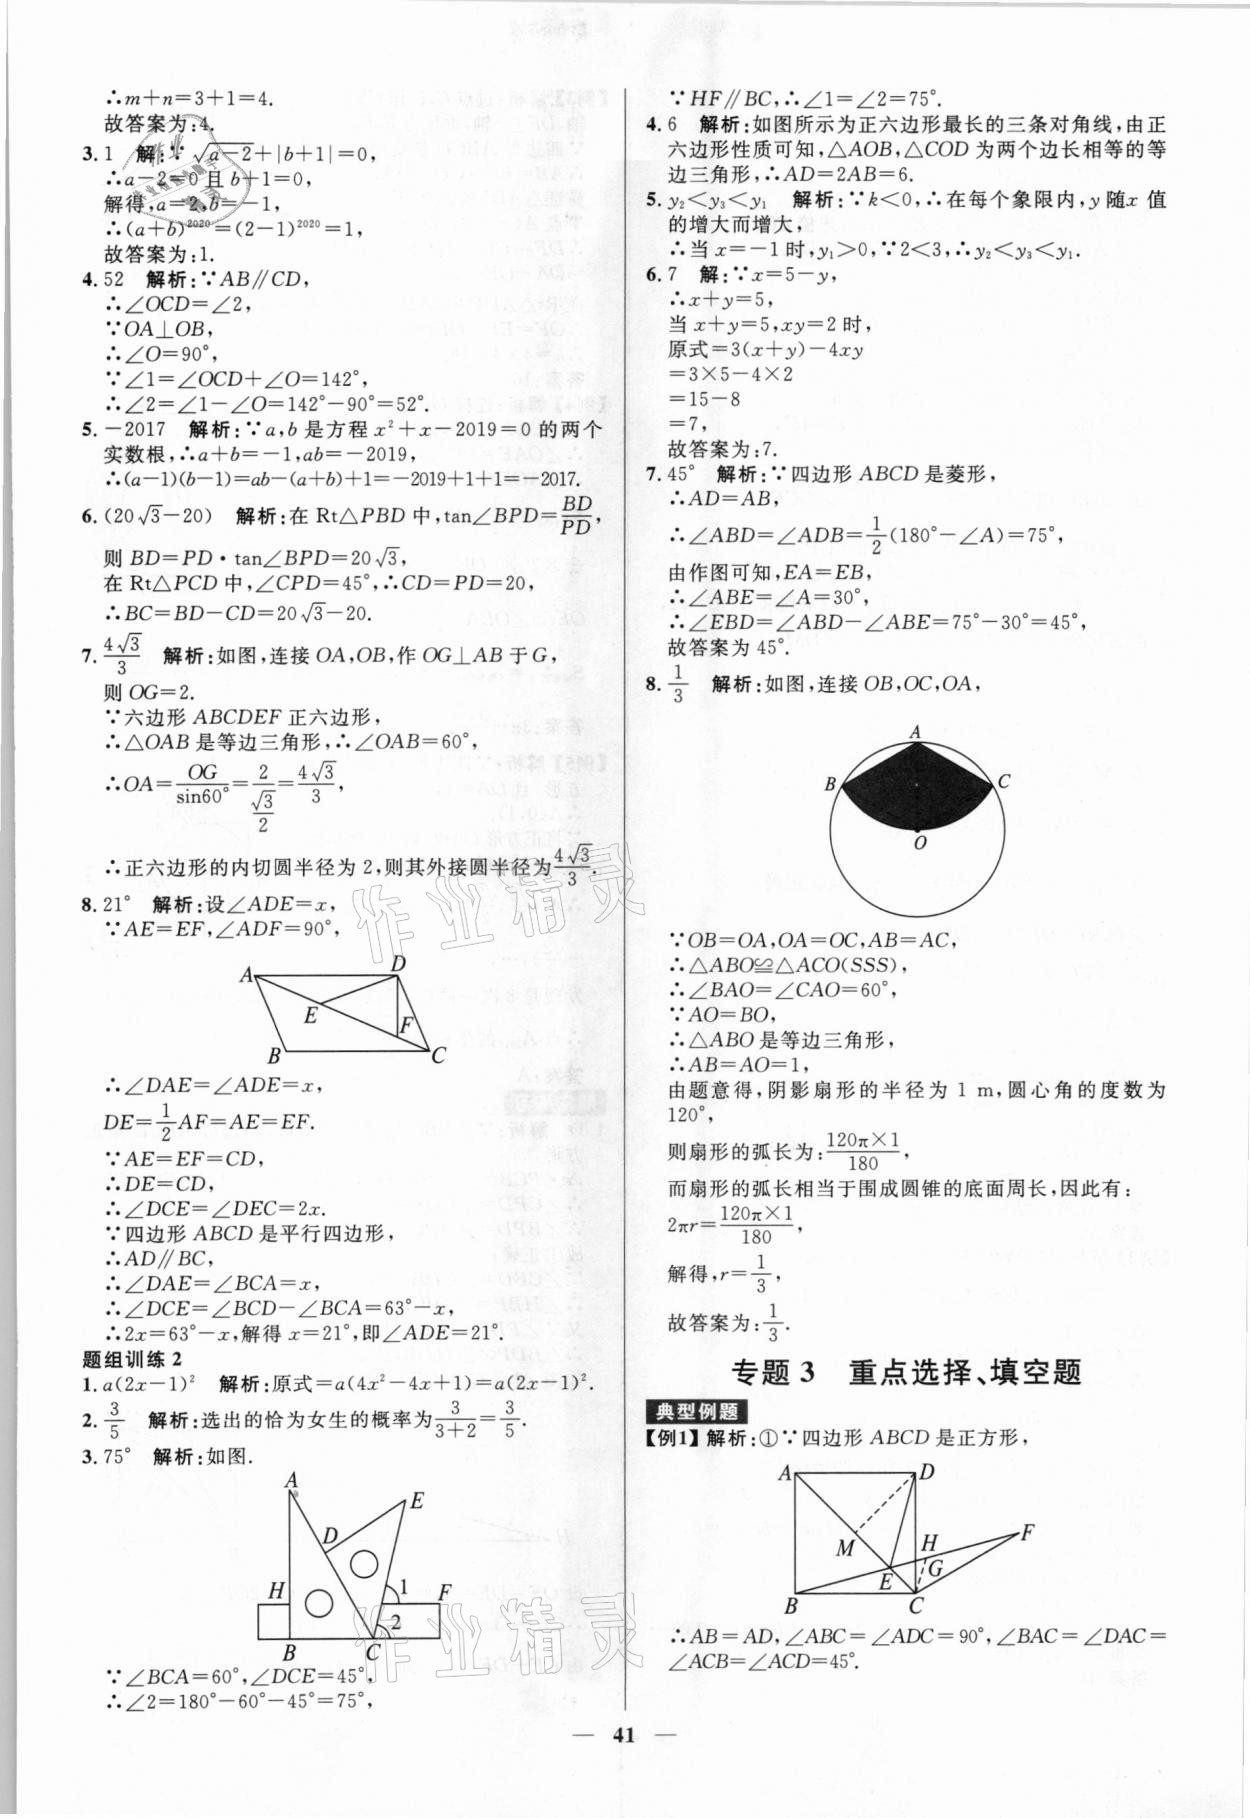 ∴m+n=3+1=4.
故答案为:4.
3. 1 解:∵√(a-2)+|b+1|=0,
∴a-2=0 且 b+1=0,
解得,a=2,b=-1,
∴(a+b)²⁰²⁰=(2-1)²⁰²⁰=1,
故答案为:1.
4. 52 解析:∵AB∥CD,
∴∠OCD=∠2,
∵OA⊥OB,
∴∠O=90°,
∵∠1=∠OCD+∠O=142°,
∴∠2=∠1-∠O=142°-90°=52°.
5. -2017 解析:∵a,b 是方程 x²+x-2019=0 的两个
实数根,∴a+b=-1,ab=-2019,
∴(a-1)(b-1)=ab-(a+b)+1=-2019+1+1=-2017.
6. (20√3-20) 解析:在 Rt△PBD 中,tan∠BPD=BD/PD,
则 BD=PD·tan∠BPD=20√3,
在 Rt△PCD 中,∠CPD=45°,∴CD=PD=20,
∴BC=BD-CD=20√3-20.
7. 4√3/3 解析:如图,连接 OA,OB,作 OG⊥AB 于 G,
则 OG=2.
∵六边形 ABCDEF 正六边形,
∴△OAB 是等边三角形,∴∠OAB=60°,
∴OA=OG/sin60°=2/(√3/2)=4√3/3,
∴正六边形的内切圆半径为 2,则其外接圆半径为4√3/3.
8. 21° 解析:设∠ADE=x,
∵AE=EF,∠ADF=90°,
A D
E F
B C
∴∠DAE=∠ADE=x,
DE=1/2AF=AE=EF.
∵AE=EF=CD,
∴DE=CD,
∴∠DCE=∠DEC=2x.
∵四边形 ABCD 是平行四边形,
∴AD∥BC,
∴∠DAE=∠BCA=x,
∴∠DCE=∠BCD-∠BCA=63°-x,
∴2x=63°-x,解得 x=21°,即∠ADE=21°.
题组训练 2
1. a(2x-1)² 解析:原式=a(4x²-4x+1)=a(2x-1)².
2. 3/5 解析:选出的恰为女生的概率为3/(3+2)=3/5.
3. 75° 解析:如图.
A
E
D
H 1 F
2
B C
∵∠BCA=60°,∠DCE=45°,
∴∠2=180°-60°-45°=75°,
∵HF∥BC,∴∠1=∠2=75°.
4. 6 解析:如图所示为正六边形最长的三条对角线,由正
六边形性质可知,△AOB,△COD 为两个边长相等的等
边三角形,∴AD=2AB=6.
5. y₂<y₃<y₁ 解析:∵k<0,∴在每个象限内,y 随 x 值
的增大而增大,
∴当 x=-1 时,y₁>0,∵2<3,∴y₂<y₃<y₁.
6. 7 解:∵x=5-y,
∴x+y=5,
当 x+y=5,xy=2 时,
原式=3(x+y)-4xy
=3×5-4×2
=15-8
=7,
故答案为:7.
7. 45° 解析:∵四边形 ABCD 是菱形,
∴AD=AB,
∴∠ABD=∠ADB=1/2(180°-∠A)=75°,
由作图可知,EA=EB,
∴∠ABE=∠A=30°,
∴∠EBD=∠ABD-∠ABE=75°-30°=45°,
故答案为 45°.
8. 1/3 解析:如图,连接 OB,OC,OA,
A
B C
O
∵OB=OA,OA=OC,AB=AC,
∴△ABO≌△ACO(SSS),
∴∠BAO=∠CAO=60°,
∵AO=BO,
∴△ABO 是等边三角形,
∴AB=AO=1,
由题意得,阴影扇形的半径为 1 m,圆心角的度数为
120°,
则扇形的弧长为:120π×1/180,
而扇形的弧长相当于围成圆锥的底面周长,因此有:
2πr=120π×1/180,
解得,r=1/3,
故答案为:1/3.
专题 3 重点选择、填空题
典型例题
【例1】解析:①∵四边形 ABCD 是正方形,
A D
F
M H
E G
B C
∴AB=AD,∠ABC=∠ADC=90°,∠BAC=∠DAC=
∠ACB=∠ACD=45°.
— 41 —
作业精灵
作业精灵